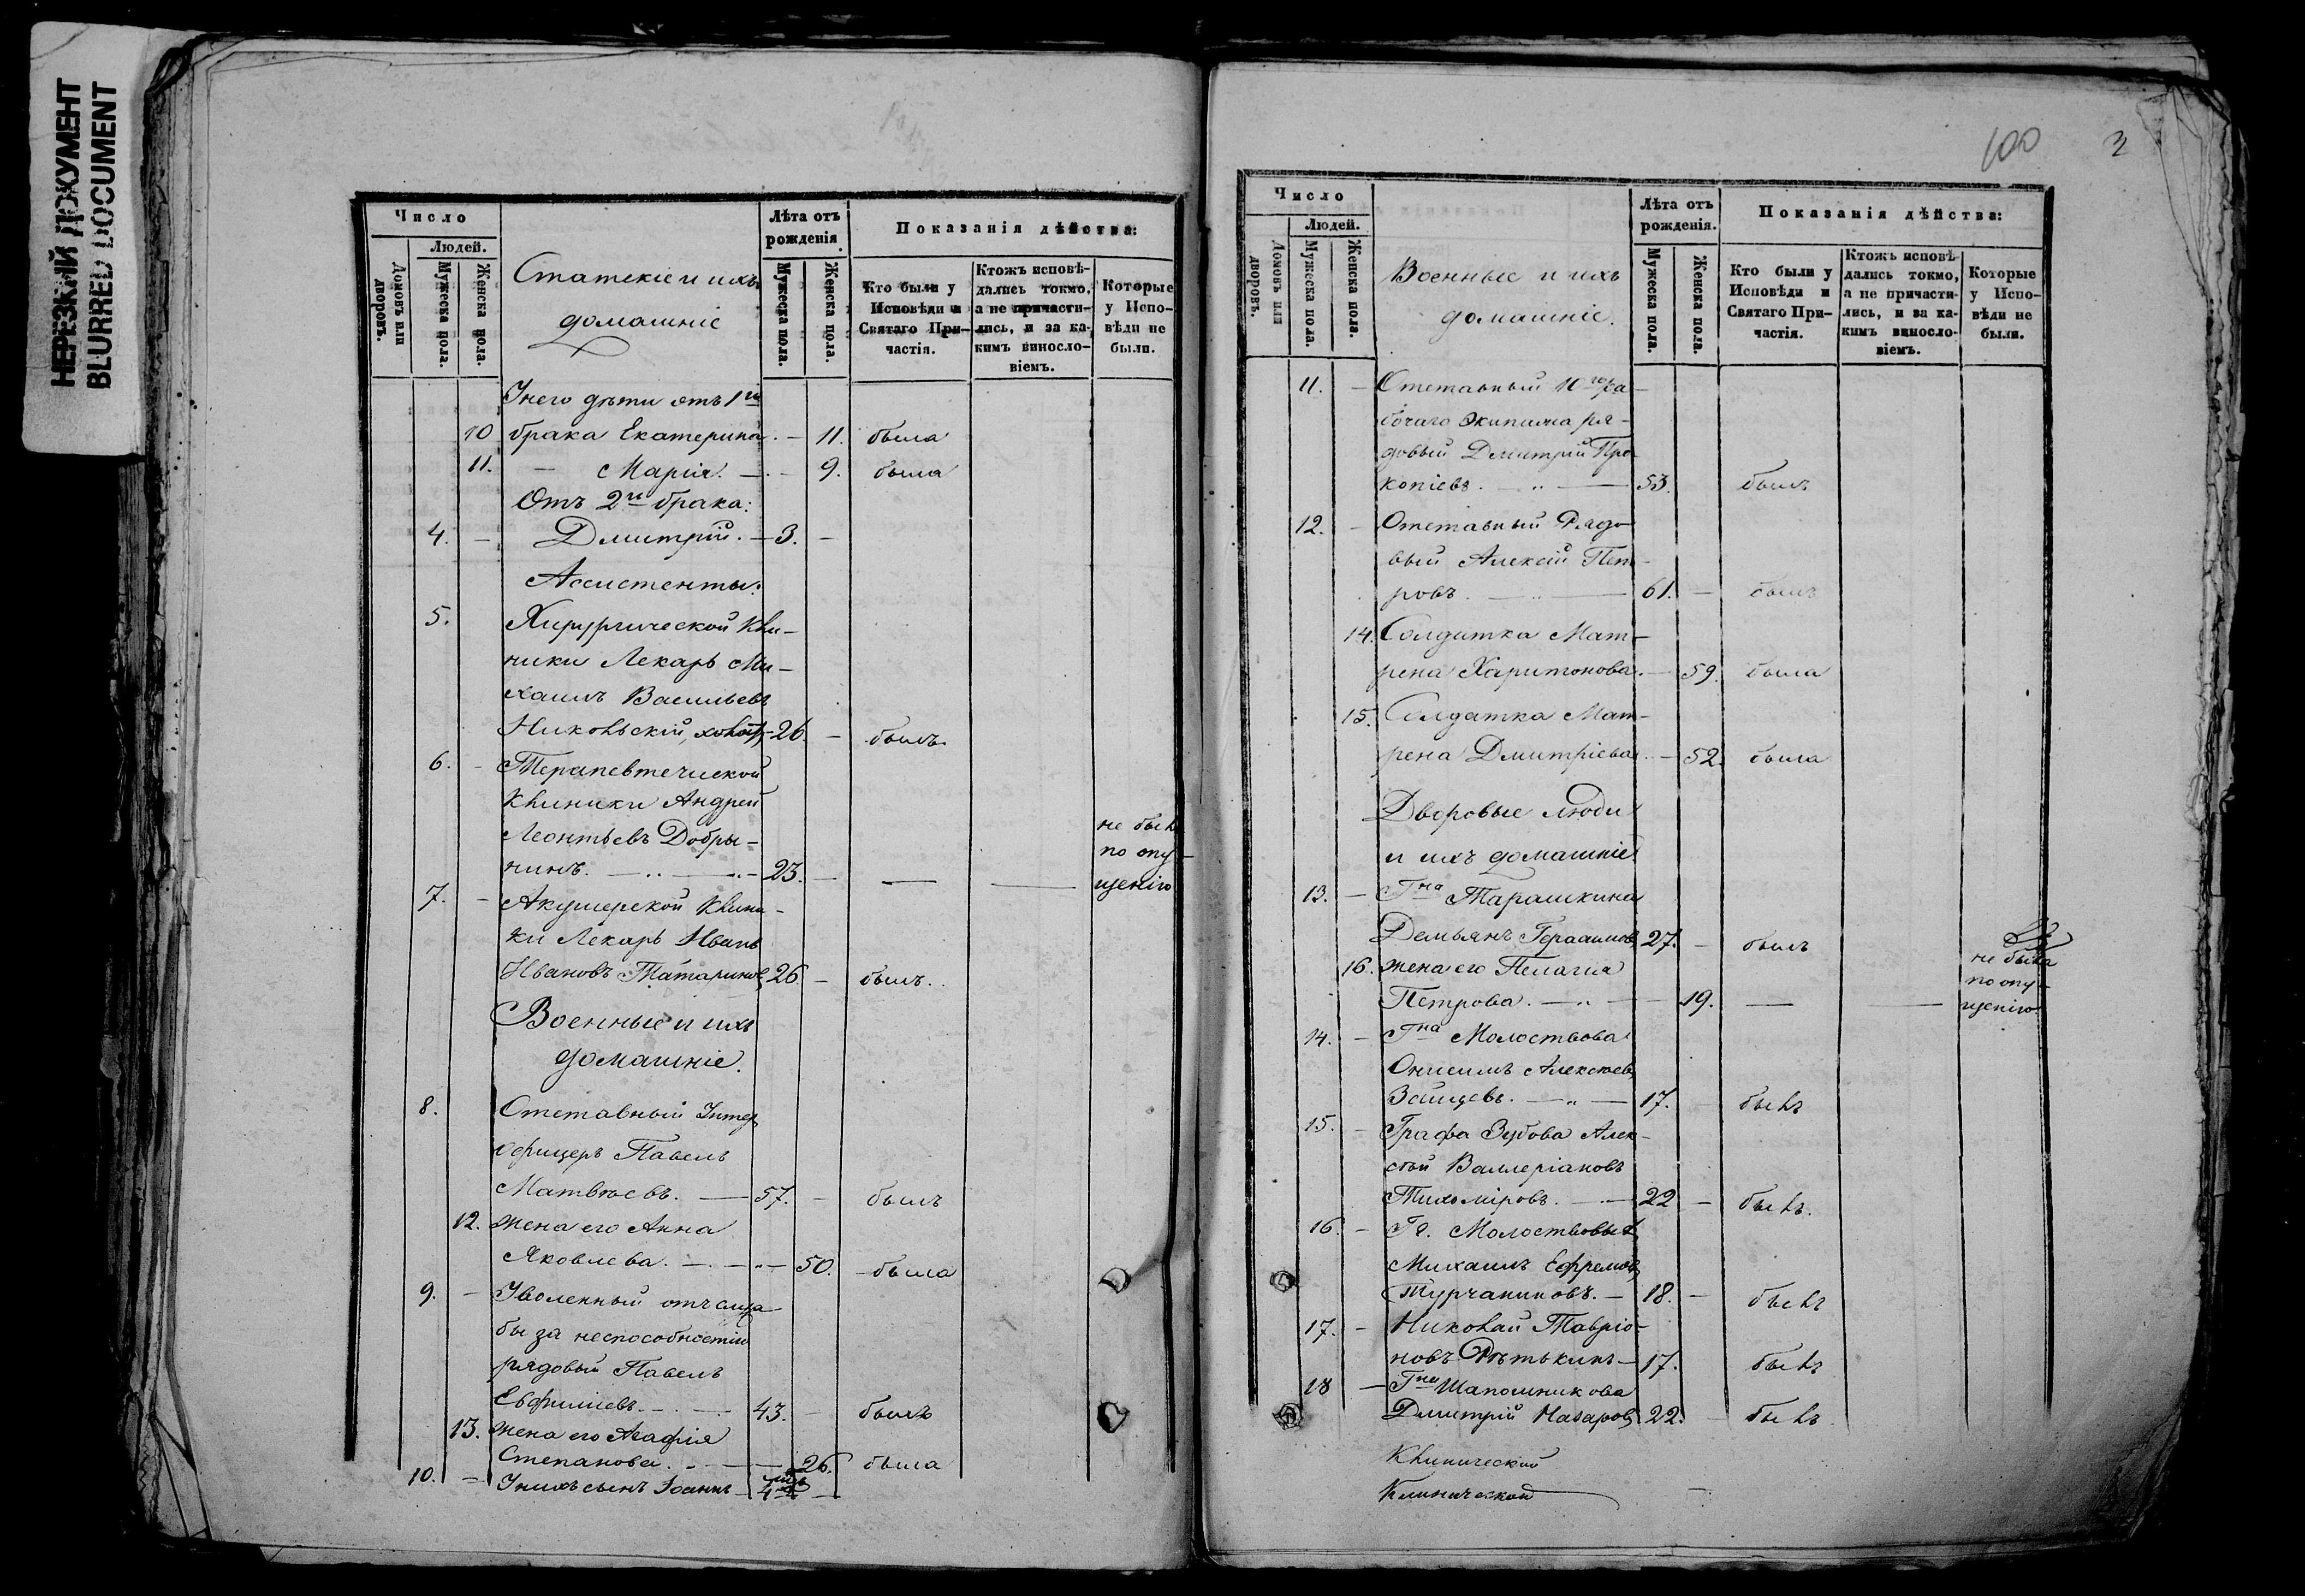 НЕРЕЗКИЙ ДОКУМЕНТ
BLURRED DOCUMENT
Число
Людей.
Домовъ или дворовъ.
Мужеска пола.
Женска пола.
Статскіе и ихъ
домашніе
Лѣта отъ рожденія
Мужеска пола.
Женска пола.
Показанія дѣйства:
Кто были у Исповѣди и Святаго Причастія.
Ктожъ исповѣдались токмо, а не причастились, и за какимъ винословіемъ.
Которые у Исповѣди не были.
У него дѣти отъ 1го
10 брака Екатерина. — 11. была
11. — Марія. — 9. была
Отъ 2го брака:
4. — Дмитрій. — 3. —
Ассистенты:
5. Хирургической Кли-
ники Лекарь Ми-
хаилъ Васильевъ
Никольскій, холос. 26. — былъ.
6. — Терапевтической
Клиники Андрей
Леонтьевъ Добры- не былъ
нинъ. — 23. — — — по опу-
щенію
7. — Акушерской Клини-
ки Лекарь Иванъ
Ивановъ Татариновъ 26 — былъ.
Военные и ихъ
домашніе.
8. Отставный Унтеръ
офицеръ Павелъ
Матвѣевъ. — 57. — былъ
12. жена его Анна
Яковлева. — 50. — была
9. — Уволенный отъ служ-
бы за неспособностію
рядовый Павелъ
Евфиміевъ. — 43. — былъ
13. жена его Агафія
Степанова. — 26. была
10. — У нихъ сынъ Іоаннъ — 4
100 3
Число
Людей.
Домовъ или дворовъ.
Мужеска пола.
Женска пола.
Военные и ихъ
домашніе.
Лѣта отъ рожденія.
Мужеска пола.
Женска пола.
Показанія дѣйства:
Кто были у Исповѣди и Святаго Причастія.
Ктожъ исповѣдались токмо, а не причастились, и за какимъ винословіемъ.
Которые у Исповѣди не были.
11. — Отставный 10го ра-
бочаго Экипажа ря-
довый Дмитрій Про-
копіевъ. — 53. былъ
12. — Отставный Рядо-
вый Алексій Пет-
ровъ. — 61. — былъ
14. Солдатка Мат-
рена Харитонова. — 59. была
15. Солдатка Мат-
рена Дмитріева. — 52. была
Дворовые люди
и ихъ домашніе
13. — Гна Тарашкина
Демьянъ Герасимовъ 27. — былъ
16. жена его Пелагія не была
Петрова. — 19. — — по опу-
щенію
14. — Гна Молоствова
Онисимъ Алексѣевъ
Зайцевъ. — 17. былъ
15. — Графа Зубова Алек-
сѣй Валлеріановъ
Тихоміровъ. — 22 — былъ.
16. — Гг. Молоствовыхъ
Михаилъ Ефремовъ
Турчаниновъ. — 18. — былъ
17. — Николай Тавріо-
новъ Рѣтькинъ — 17. былъ
18 — Гна Шапошникова
Дмитрій Назаровъ 22. былъ
Клинической
Клинической